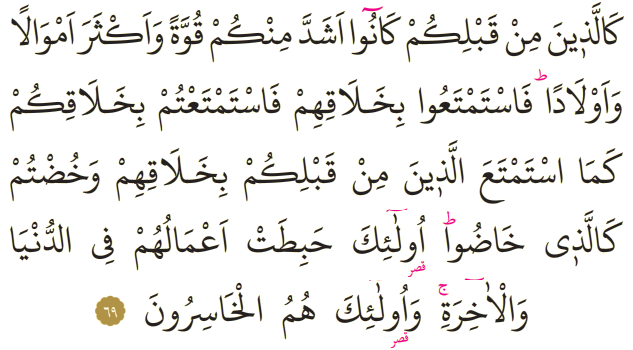 كَالَّذ۪ينَ مِنْ قَبْلِكُمْ كَانُٓوا اَشَدَّ مِنْكُمْ قُوَّةً وَاَكْثَرَ اَمْوَالًا
وَاَوْلَادًاۜ فَاسْتَمْتَعُوا بِخَلَاقِهِمْ فَاسْتَمْتَعْتُمْ بِخَلَاقِكُمْ
كَمَا اسْتَمْتَعَ الَّذ۪ينَ مِنْ قَبْلِكُمْ بِخَلَاقِهِمْ وَخُضْتُمْ
كَالَّذ۪ي خَاضُواۜ اُو۬لٰٓئِكَ حَبِطَتْ اَعْمَالُهُمْ فِي الدُّنْيَا
قصر
وَالْاٰخِرَةِۚ وَاُو۬لٰٓئِكَ هُمُ الْخَاسِرُونَ ٦٩
قصر